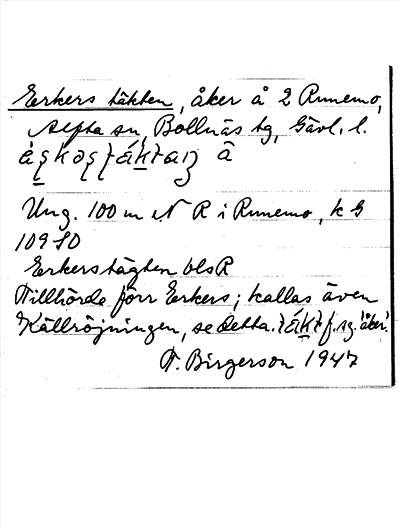 Erkers täkten, åker å 2 Runemo,
Alfta sn, Bollnäs tg, Gävl. l.
Ung. 100 m N R i Runemo, k G
10980
Erkerstägten blsR
Tillhörde förr Erkers; kallas även
Källröjningen, se detta. f. sg. 'åker'.
T. Birgerson 1947